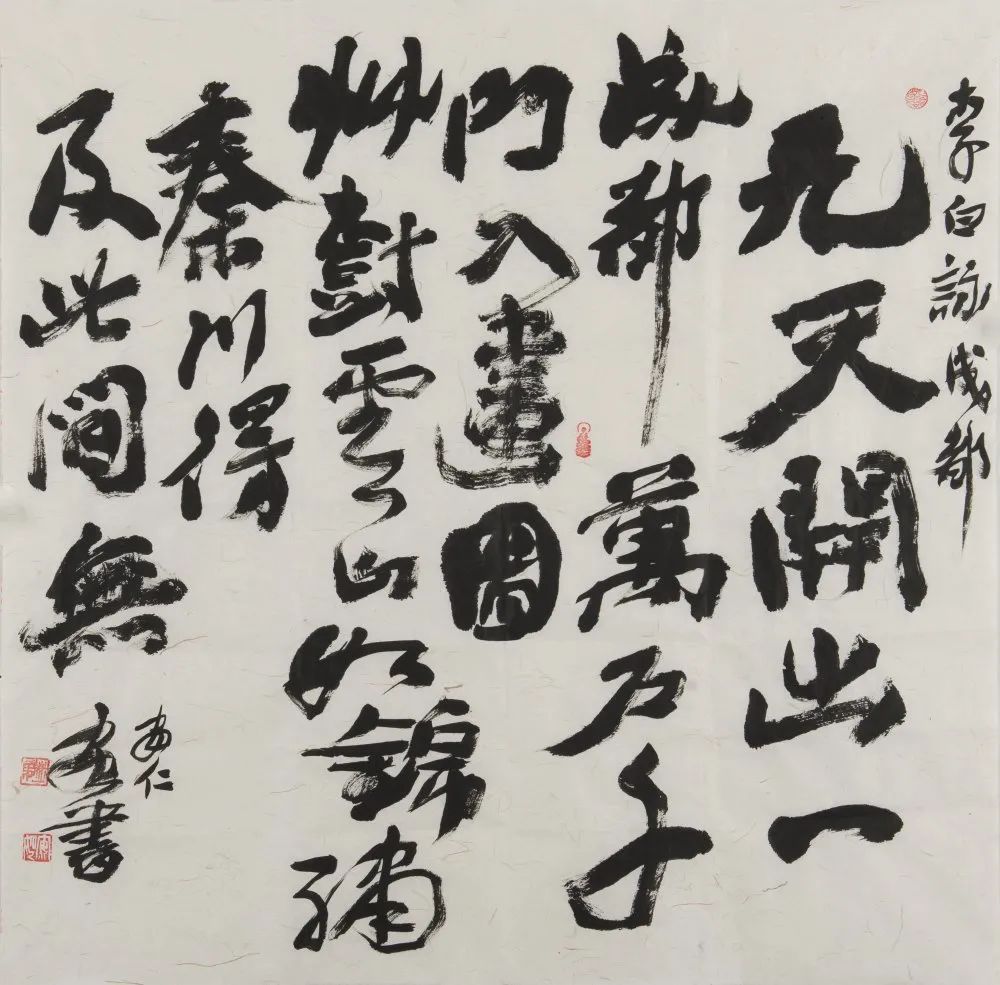 李白詠成都
九天開出一
成都萬户千
門入畫圖
艸樹雲山如錦繡
秦川得
及此間無
仁
書